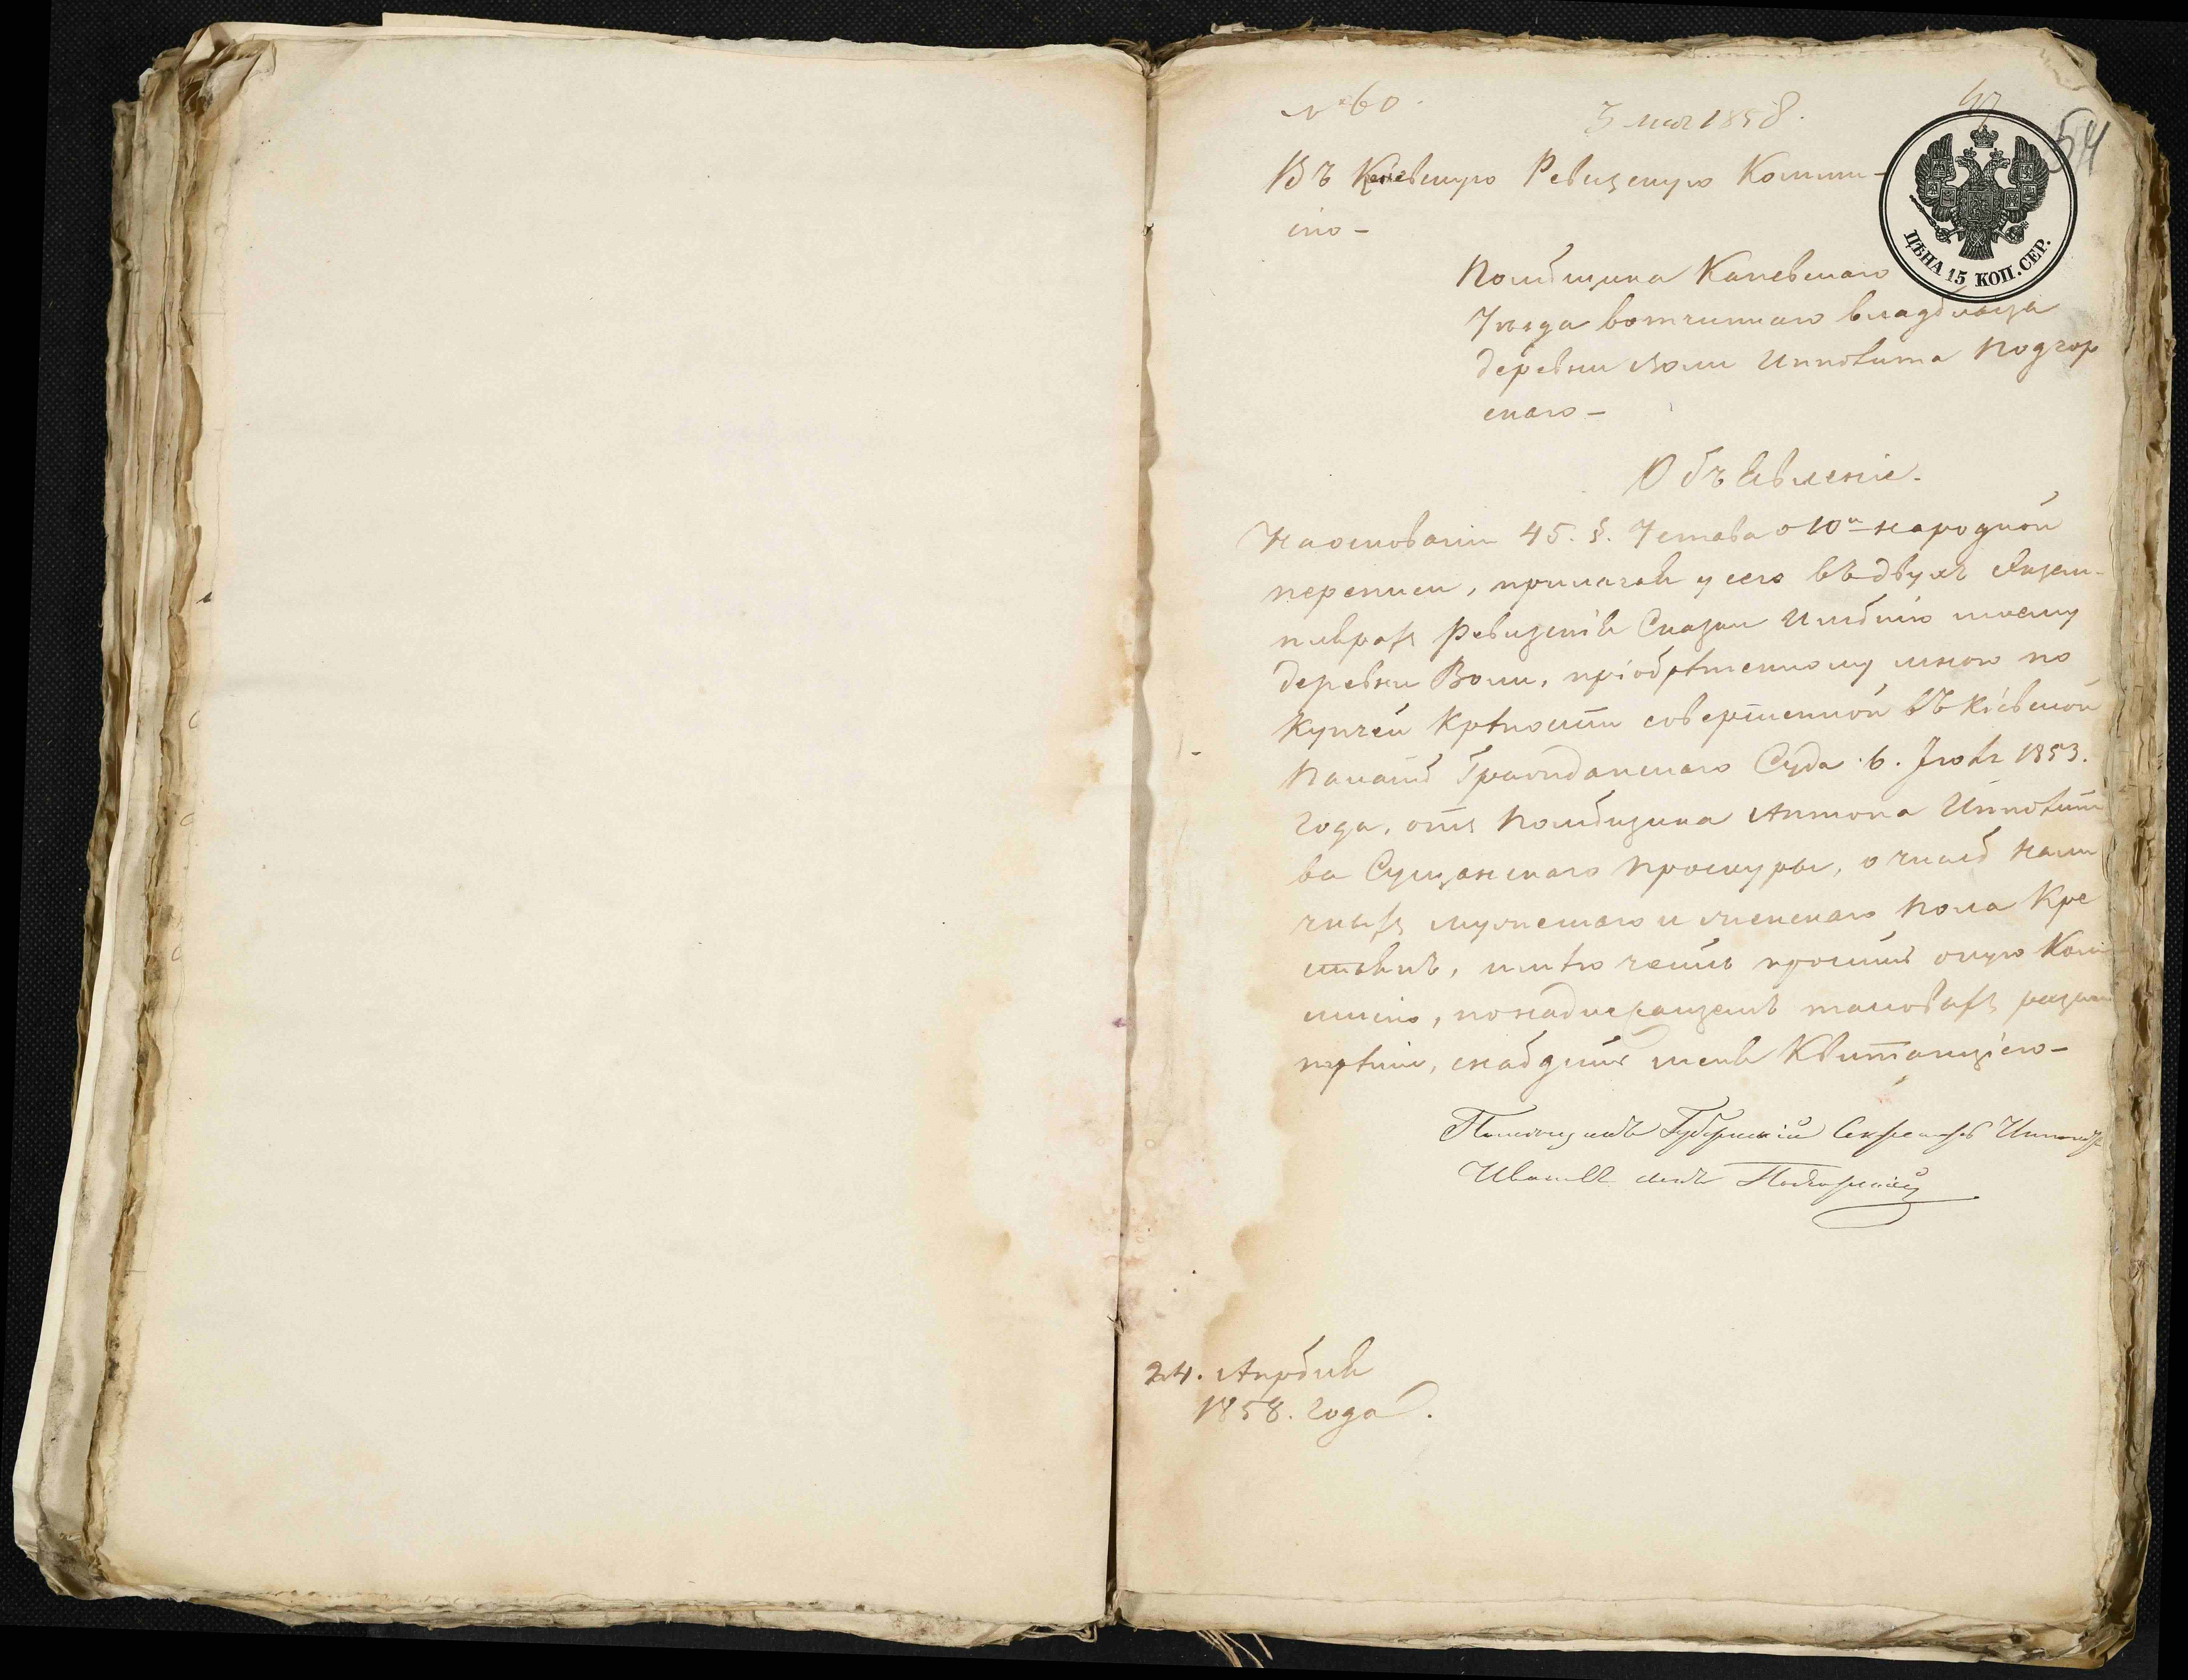 № 60.
3 мая 1858.
54
Въ Каневскую Ревизскую Комми-
сію –
ЦѢНА 15 КОП. СЕР.
Помѣщика Каневскаго
Уѣзда вотчиннаго владѣльца
деревни Воли Ипполита Подгор
скаго –
Объявленіе.
На основаніи 45. §. Устава о 10й народной
переписи, прилагая у сего въ двухъ Экзем-
плярахъ Ревизскія Сказки Имѣнію моему
деревни Воли, пріобрѣтенному мною по
Купчей Крѣпости совершенной въ Кіевской
Палатѣ Гражданскаго Суда 6. 1853.
года, отъ Помѣщика Антона Ипполито
ва Сущанскаго Проскуры, о числѣ нали
чныхъ мужескаго и женскаго пола Кре
стьянъ, имѣю честь просить оную Ком
мисію, по надлежащемъ таковыхъ разсмо
трѣніи, снабдить меня Квитанціею –
Помощикъ Губернскій Секретарь Ипполитъ
Ивановъ сынъ Подгорскій
24. Апрѣля
1858. года.